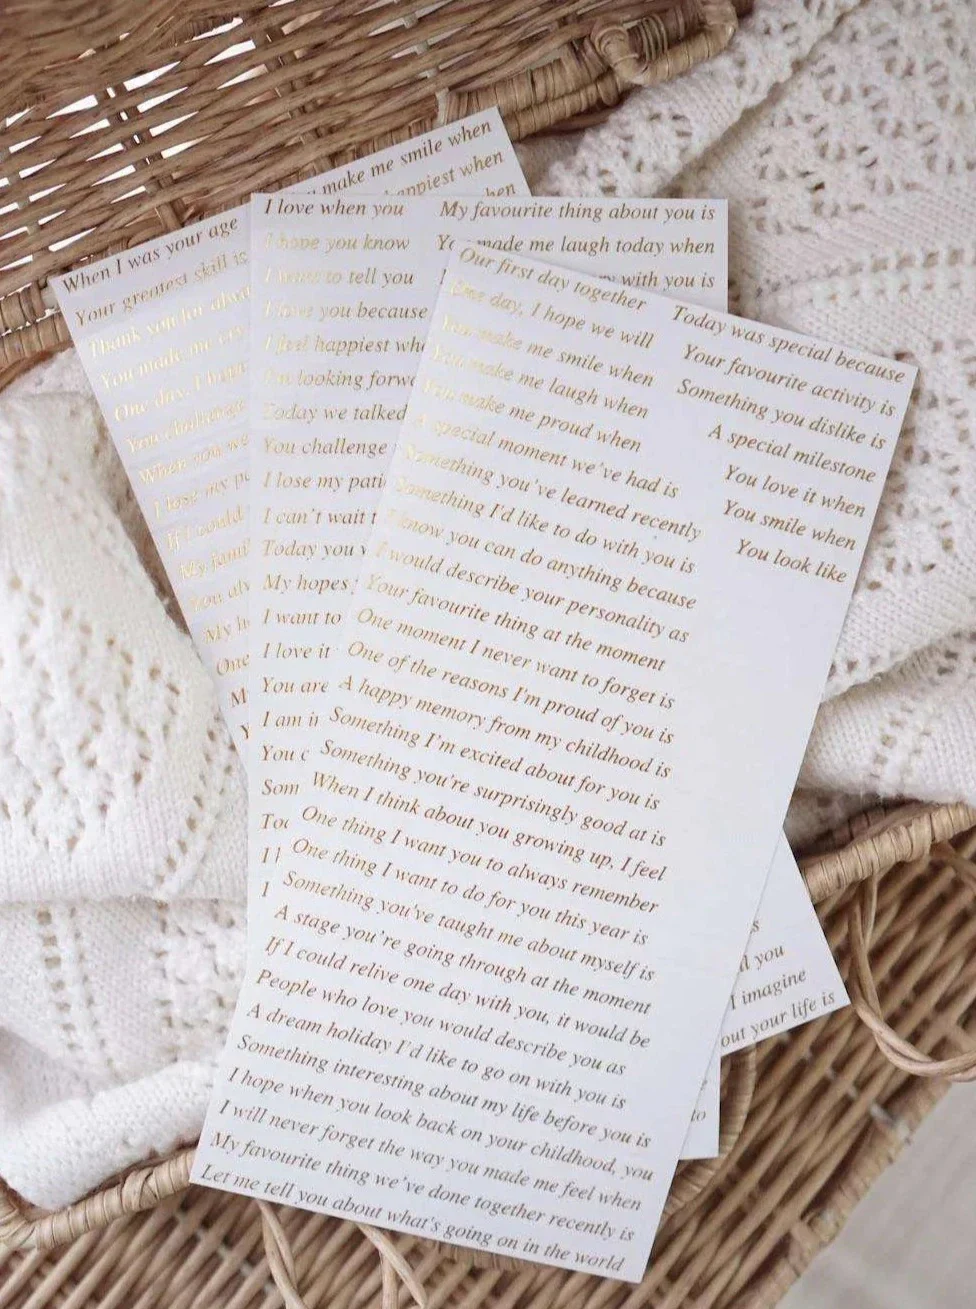 make me smile when
happiest when
when
When I was your age
Your greatest skill is
Thank you for
You made me
One day, I hope
You challenge
When you
I lose my
If I could
My
You
My
One
I love when you
I hope you know
I want to tell you
I love you because
I feel happiest
I'm looking
Today we talked
You challenge
I lose my
I can't wait
Today you
My hopes
I want to
I love it
You are
I am
You
My favourite thing about you is
made me laugh today when
with you is
Our first day together
One day, I hope we will
You make me smile when
You make me laugh when
You make me proud when
A special moment we've had is
Something you've learned recently
Something I'd like to do with you is
I know you can do anything because
I would describe your personality as
Your favourite thing at the moment
One moment I never want to forget is
One of the reasons I'm proud of you is
A happy memory from my childhood is
Something I'm excited about for you is
Something you're surprisingly good at is
When I think about you growing up, I feel
One thing I want you to always remember
One thing I want to do for you this year is
Something you've taught me about myself is
A stage you're going through at the moment
If I could relive one day with you, it would be
People who love you would describe you as
A dream holiday I'd like to go on with you is
Something interesting about my life before you is
I hope when you look back on your childhood, you
I will never forget the way you made me feel when
My favourite thing we've done together recently is
Let me tell you about what's going on in the world
Today was special because
Your favourite activity is
Something you dislike is
A special milestone
You love it when
You smile when
You look like
you
I imagine
your life is